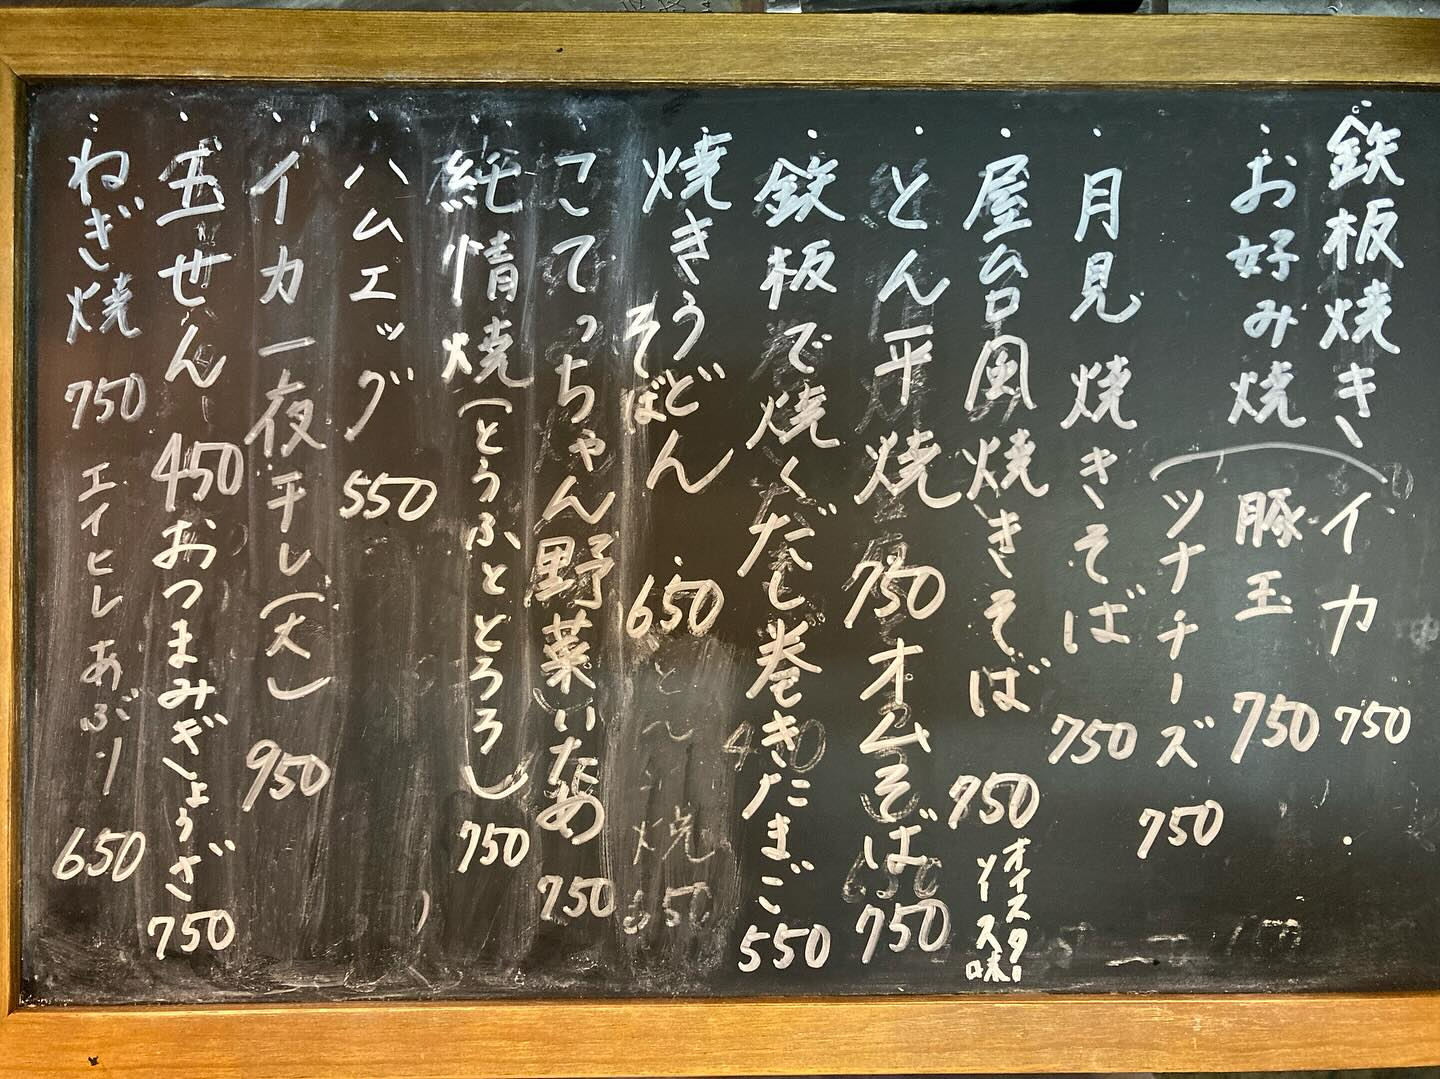 鉄板焼き
お好み焼
イカ 750
豚玉 750
ツナチーズ 750
月見焼きそば 750
屋台風焼きそば 750
オイスター
ソース味
とん平焼 750 オムそば 750
鉄板で焼くだし巻きたまご 550
焼きうどん 650
そば
こてっちゃん野菜いため 750
純情焼(とうふととろろ) 750
ハムエッグ 550
イカ一夜干し(大) 950
玉せん 450 おつまみぎょうざ 750
ねぎ焼 750 エイヒレあぶり 650